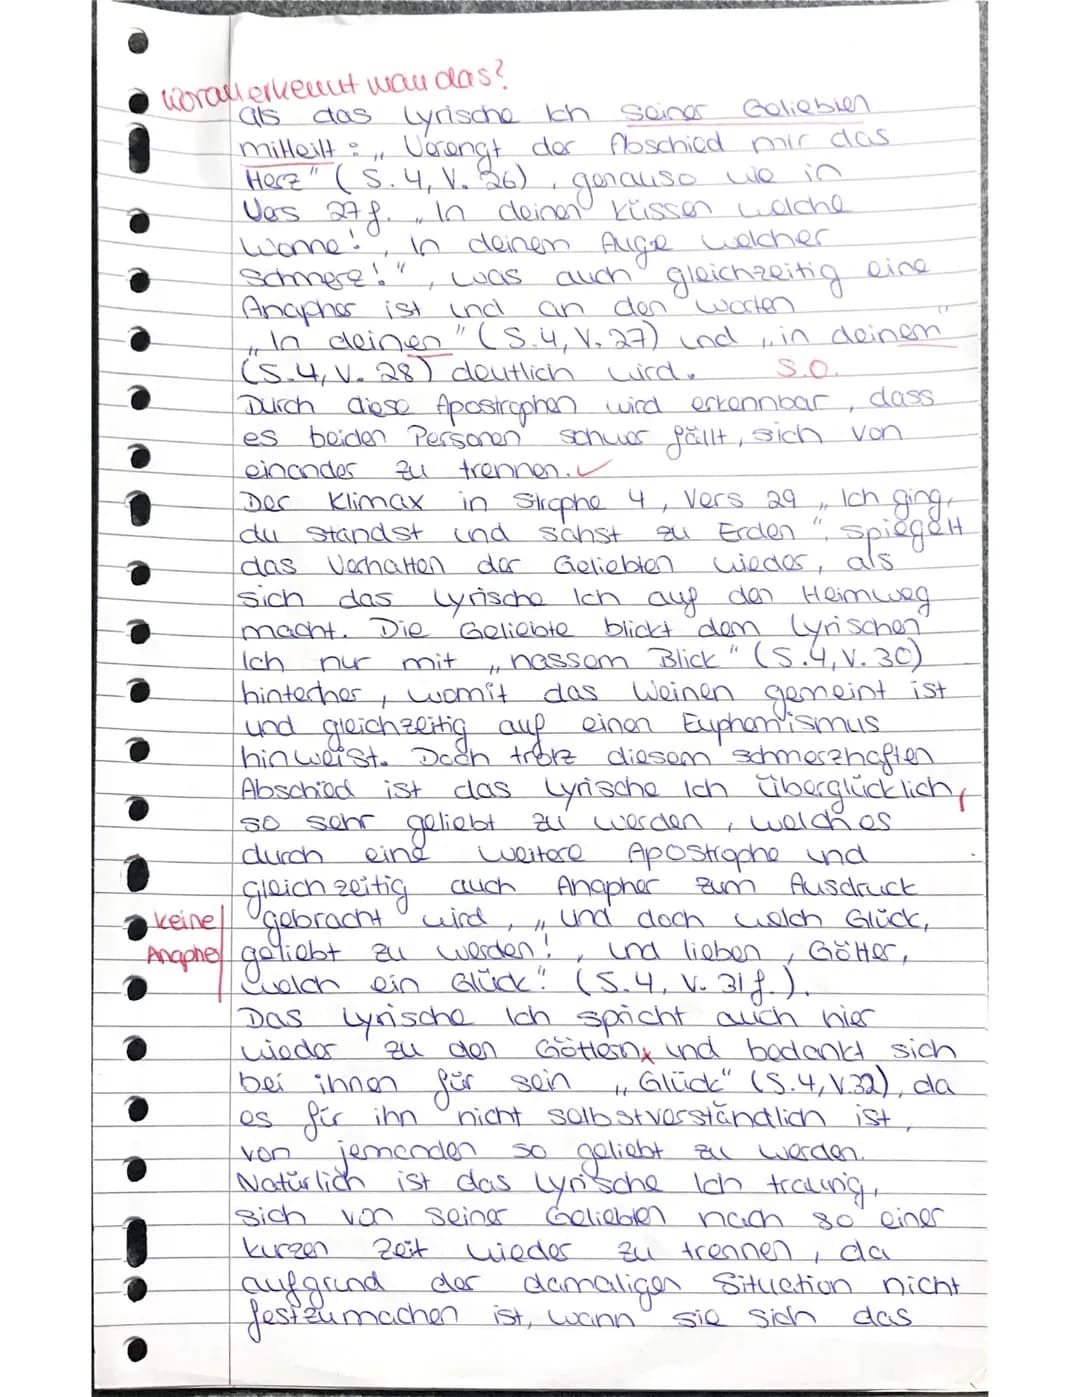 woran erkennt man das?
als das Lyrische Ich seiner Geliebten
mitteilt: „Verengt der Abschied mir das
Herz" (S. 4, V. 26), genauso wie in
Vers 27 f. „In deinen Küssen welche
Wonne!", in deinem Auge welcher
Schmerz!", was auch gleichzeitig eine
Anapher ist und an den Worten
„In deinen" (S. 4, V. 27) und „in deinem"
(S. 4, V. 28) deutlich wird.
S.O.
Durch diese Apostrophen wird erkennbar, dass
es beiden Personen schwer fällt, sich von
einander zu trennen. ✓
Der Klimax in Strophe 4, Vers 29 „Ich ging,
du standst und sahst zu Erden", spiegelt
das Verhalten der Geliebten wieder, als
sich das Lyrische Ich auf den Heimweg
macht. Die Geliebte blickt dem Lyrischen
Ich nur mit „nassem Blick" (S. 4, V. 30)
hinterher, womit das Weinen gemeint ist
und gleichzeitig auf einen Euphemismus
hinweist. Doch trotz diesem schmerzhaften
Abschied ist das Lyrische Ich überglücklich,
so sehr geliebt zu werden, welches
durch eine weitere Apostrophe und
gleichzeitig auch Anapher zum Ausdruck
keine
gebracht wird, „und doch welch Glück,
Anapher
geliebt zu werden!, und lieben, Götter,
welch ein Glück!" (S. 4, V. 31 f.).
Das Lyrische Ich spricht auch hier
wieder zu den Göttern, und bedankt sich
bei ihnen für sein „Glück" (S. 4, V. 32), da
es für ihn nicht selbstverständlich ist,
von jemanden so geliebt zu werden.
Natürlich ist das Lyrische Ich traurig,
sich von seiner Geliebten nach so einer
kurzen Zeit wieder zu trennen, da
aufgrund der damaligen Situation nicht
festzumachen ist, wann sie sich das